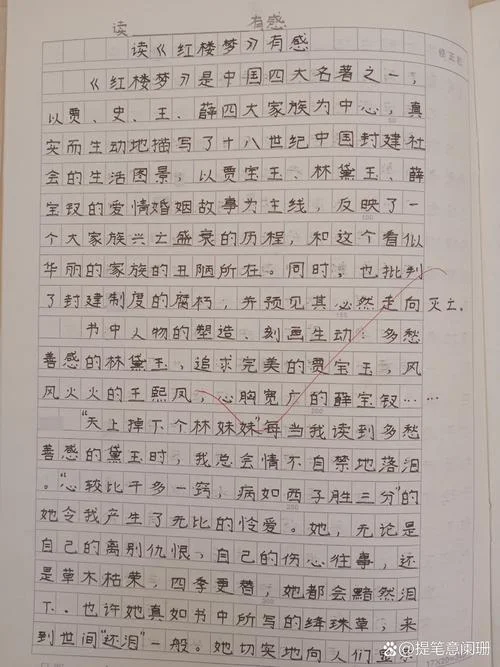 读 有感
读《红楼梦》有感
修正栏
《红楼梦》是中国四大名著之一，
以贾、史、王、薛四大家族为中心，真
实而生动地描写了十八世纪中国封建社
会的生活图景，以贾宝玉、林黛玉、薛
宝钗的爱情婚姻故事为主线，反映了一
个大家族兴亡盛衰的历程，和这个看似
华丽的家族的丑陋所在。同时，也批判
了封建制度的腐朽，并预见其必然走向灭亡。
书中人物的塑造、刻画生动：多愁
善感的林黛玉，追求完美的贾宝玉，风
风火火的王熙凤，心胸宽广的薛宝钗……
“天上掉下个林妹妹”每当我读到多愁
善感的黛玉时，我总会情不自禁地落泪
。“心较比干多一窍，病如西子胜三分”的
她令我产生了无比的怜爱。她，无论是
自己的离别仇恨，自己的伤心往事，还
是草木枯荣，四季更替，她都会黯然泪
下．也许她真如书中所写的绛珠草，来
到世间“还泪”一般。她切实地向人们显
@提笔意阑珊